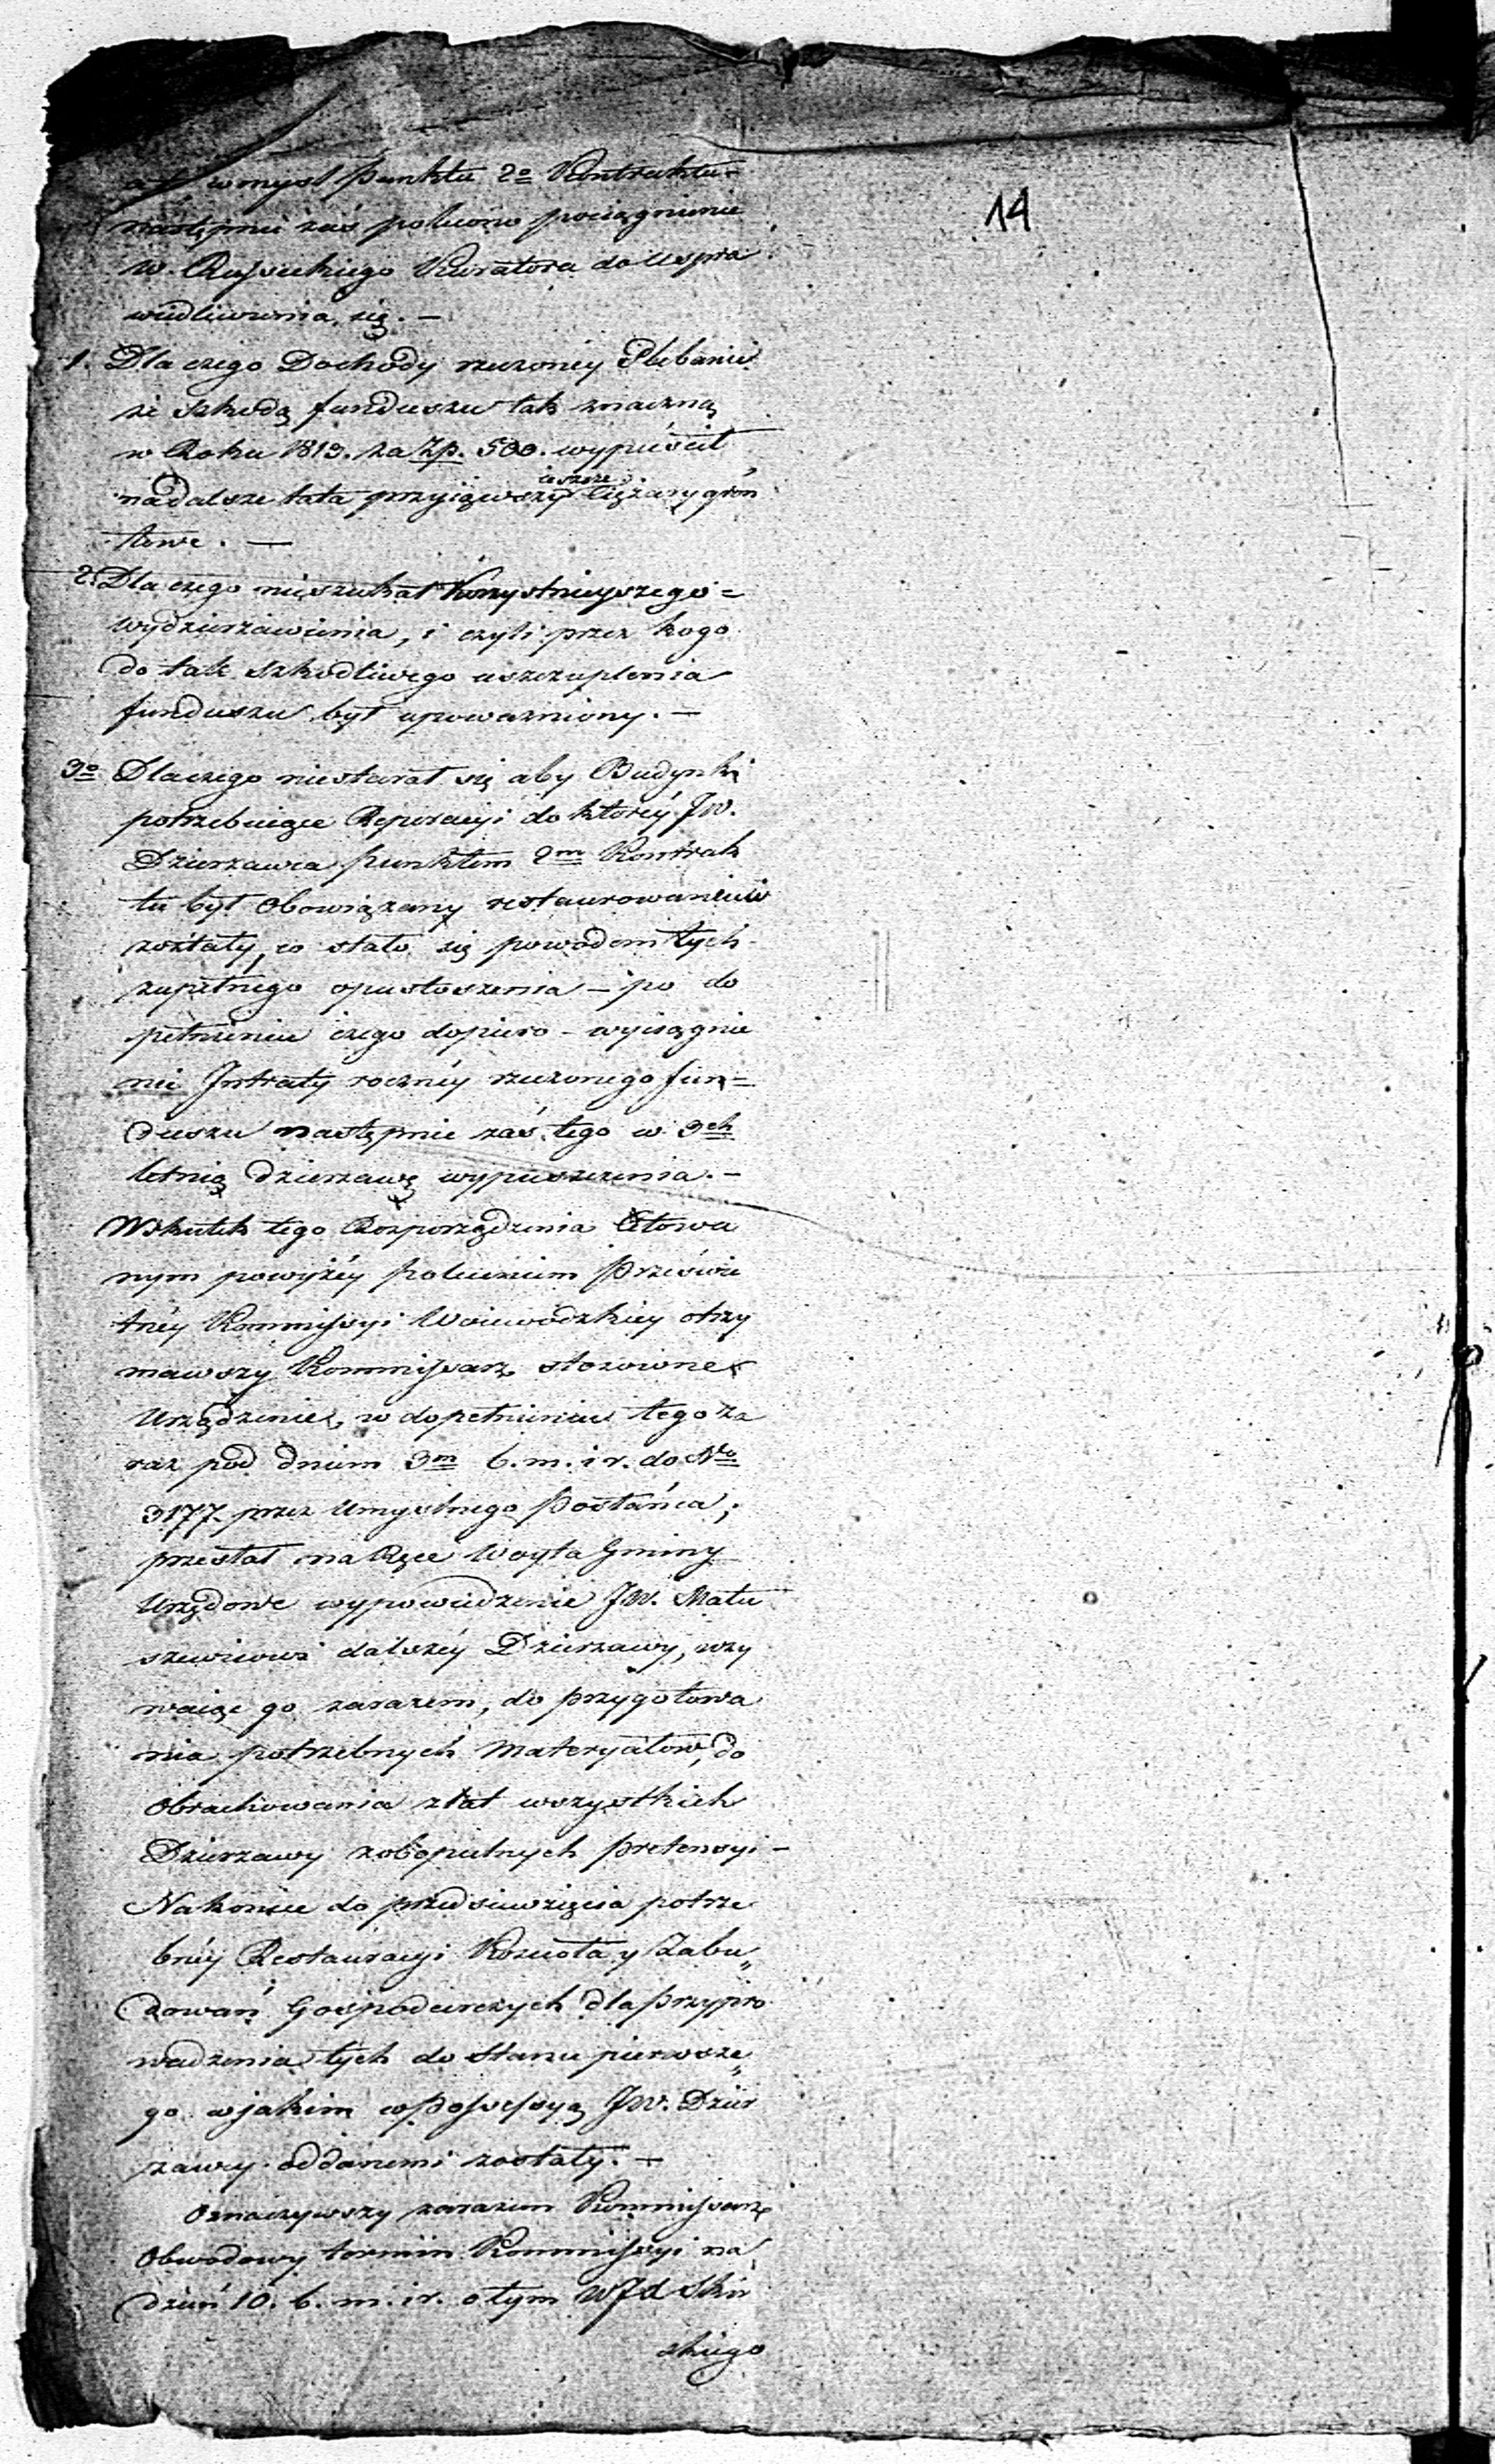 w mysl Punktu 2o Kontraktu
następnie zaś polecono pociągnienie
W. Rusieckiego Kuratora do Uspra
wiedliwienia się. —
14
1. Dla czego Dochody rzeczoney Plebanii
ze szkodą funduszu tak znaczną
w Roku 1819. za Zp. 500. wypuścił
nadalsze lata przyiąwszy ieszcze ciężary grón
towe. —
2. Dla czego nieszukał korzystnieyszego =
wydzierżawienia, i czyli przez kogo
do tak szkodliwego uszczuplenia
funduszu był upoważniony. —
3o Dlaczego niestarał się aby Budynki
potrzebuiące Reperacyi do którey JW.
Dzierzawca punktem 2m Kontrak
tu był Obowiązany restaurowanemi
zostały, co stało się powodem tych
zupełnego opustoszenia — po do
pełnieniu czego dopiero — wyciągnie
nie Jntraty roczney rzeczonego fun=
duszu następnie zaś tego w 3ch
letnią dzierzawę wypuszczenia. —
Wskutek tego Rozporządzenia Cytowa
nym powyżéy poleceniem Prześwie
tnéy Kommissyi Woiewódzkiey otrzy
mawszy Kommissarz stosowne
Urządzenie, w dopełnieniu tego za
raz pod dniem 3m b. m. i r. do Nro
3177. przez Umyślnego Posłańca,
przesłał na Ręce Woyta Gminy
Urzędowe wypowiedzenie JW. Matu
szewiczowi dalszéy Dzierzawy, wzy
waiąc go zarazem, do przygotowa
nia potrzebnych Materyałów, do
Obrachowania z lat wszystkich
Dzierzawy zobopulnych pretensyi —
Nakoniec do przedsiewzięcia potrze
bnéy Restauracyi Kościoła y Zabu„
dowań Gospodarczych dla przypro
wadzenia tych do stanu pierwsze„
go w jakim w Possessyą JW. Dzier
zawcy oddanemi zostały. —
Oznaczywszy zarazem Kommissarz
Obwodowy termin Kommissyi na
dzień 10. b. m. i r. o tym WJX Skir
skiego